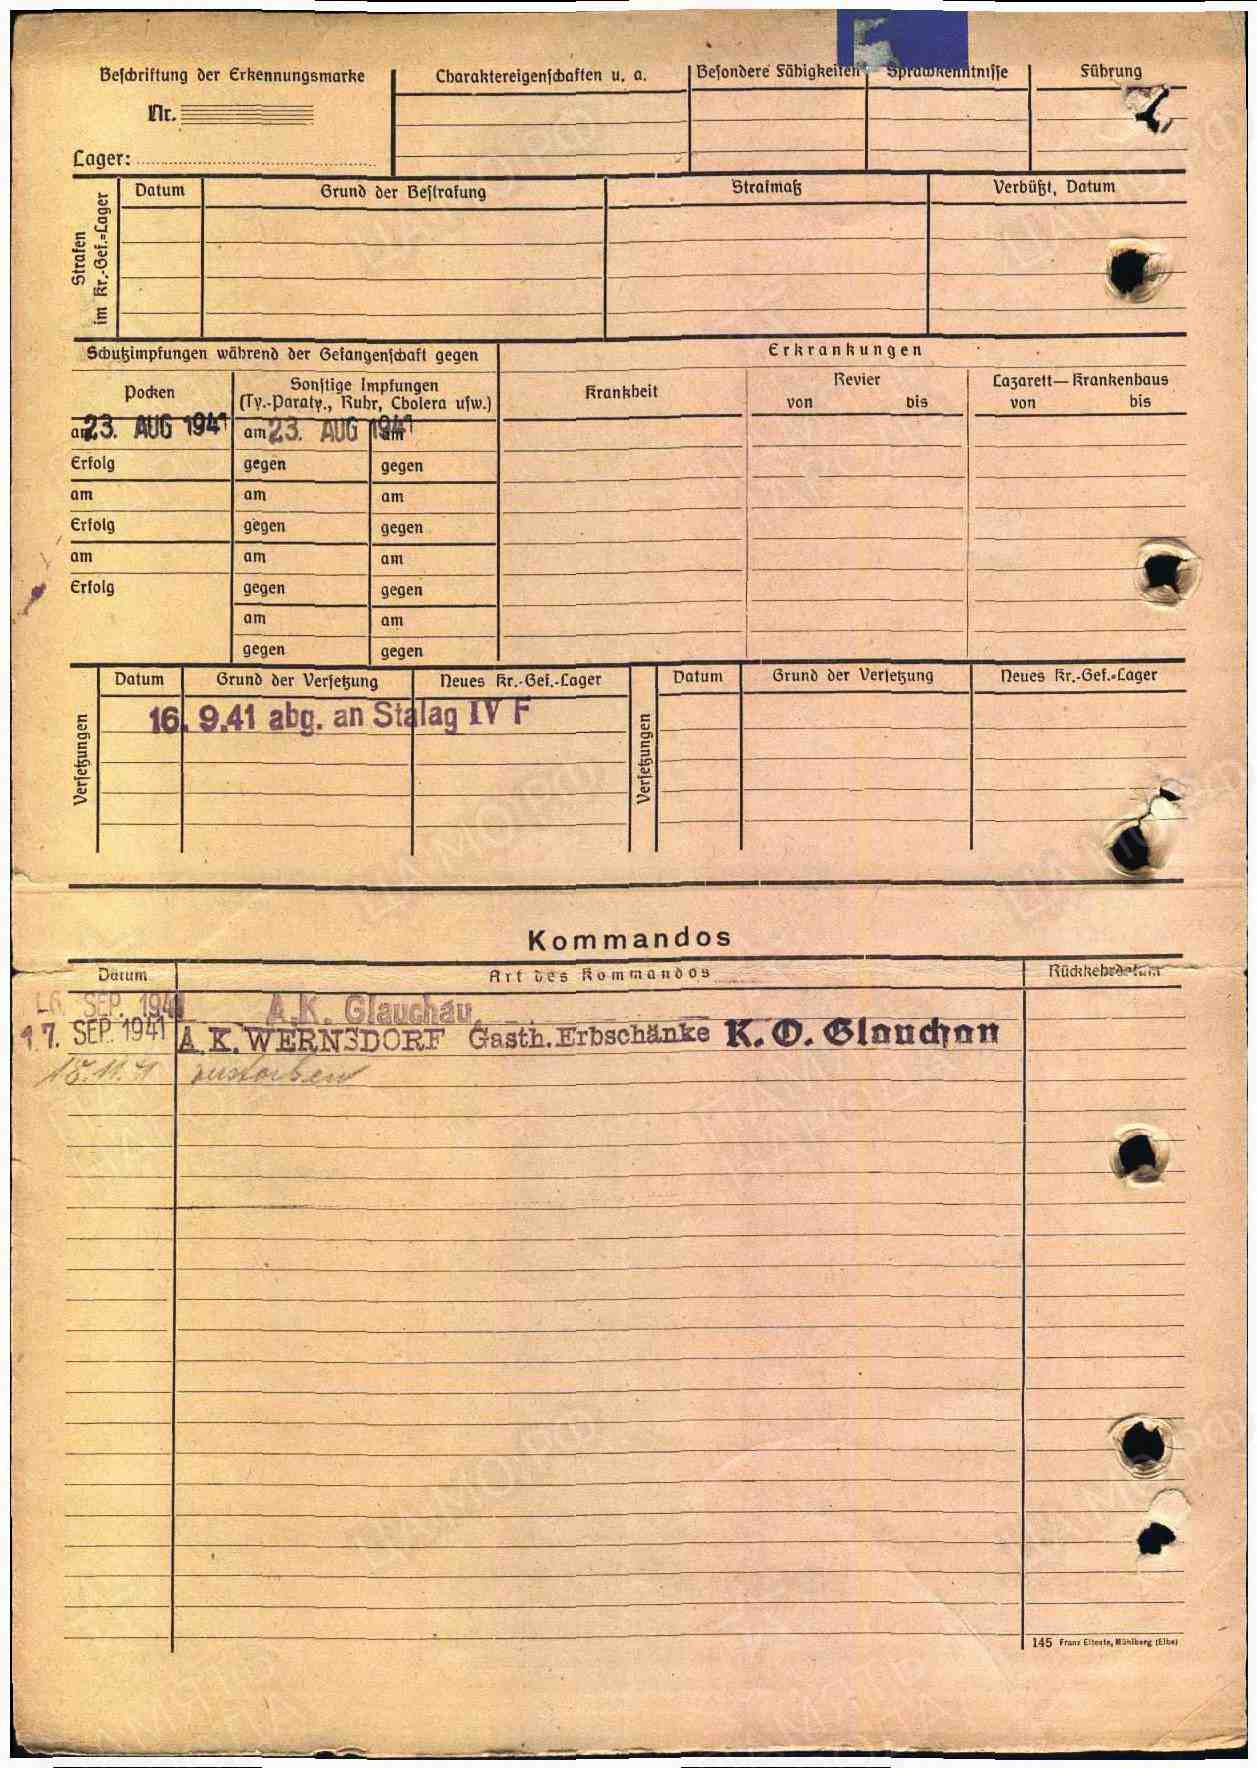 Beschriftung der Erkennungsmarke
Charaktereigenschaften u. a.
Besondere Fähigkeiten
Sprachkenntnisse
Führung
Nr.
Lager:
Strafen im Kr.-Gef.=Lager
Datum
Grund der Bestrafung
Strafmaß
Verbüßt, Datum
Schutzimpfungen während der Gefangenschaft gegen
Erkrankungen
Pocken
Sonstige Impfungen
(Ty.-Paraty., Ruhr, Cholera usw.)
Krankheit
Revier
von bis
Lazarett— Krankenhaus
von bis
am 23. AUG 1941 am 23. AUG 1941 am
Erfolg gegen gegen
am am am
Erfolg gegen gegen
am am am
Erfolg gegen gegen
am am
gegen gegen
Versetzungen
Datum Grund der Versetzung Neues Kr.-Gef.-Lager
16. 9.41 abg. an Stalag IV F
Versetzungen
Datum Grund der Versetzung Neues Kr.-Gef.=Lager
Kommandos
Datum Art des Kommandos Rückkehrdatum
SEP. 1941 A.K. Glauchau
17. SEP. 1941 A.K. WERNSDORF Gasth. Erbschänke K. O. Glauchau
15.11.41 verstorben
145 Franz Elteste, Mühlberg (Elbe)
ЦАМО РФ